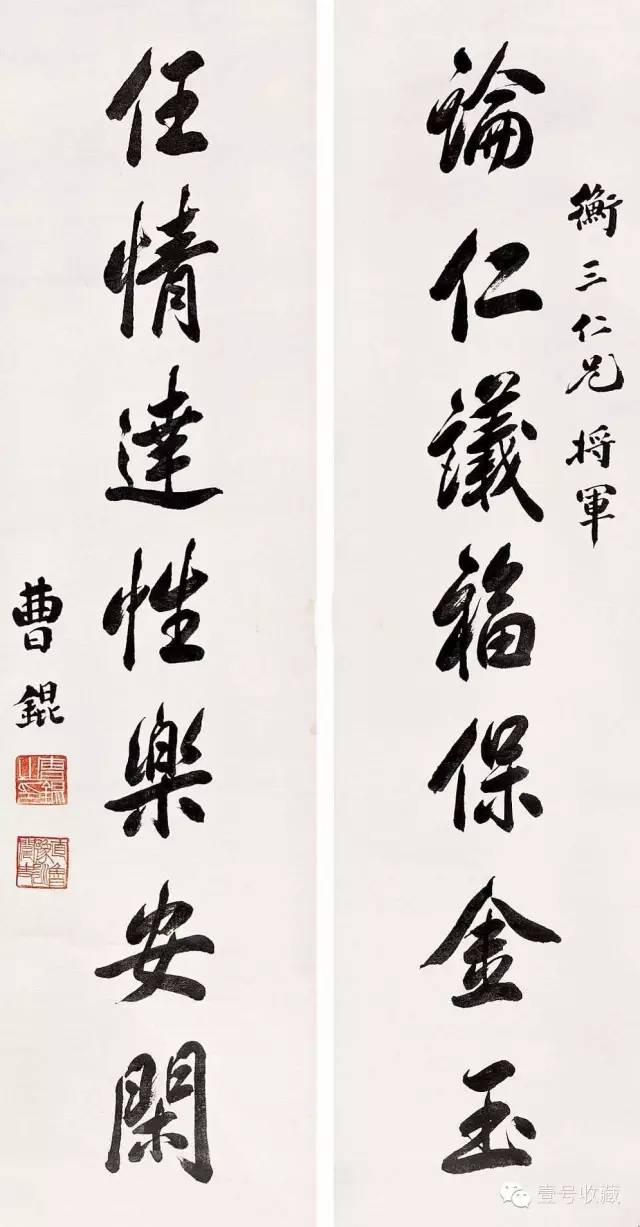 衡三仁兄将軍
論仁議福保金玉
任情達性樂安閑
曹錕
曹錕之印
壹号收藏